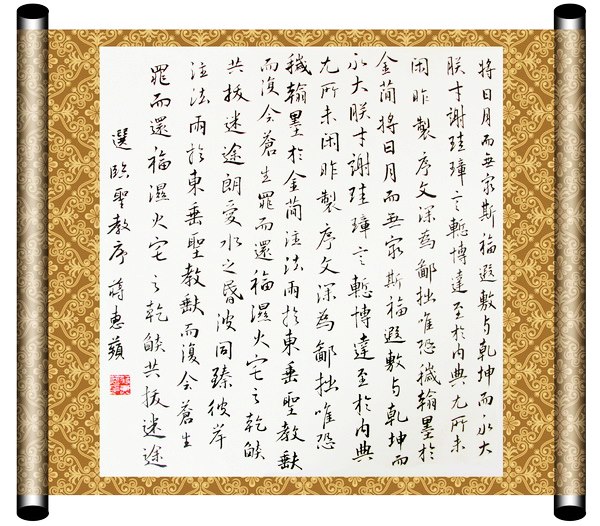 將日月而無窮斯福遐敷与乾坤而永大
朕才謝珪璋言慙博達至於内典尤所未
閑昨製序文深為鄙拙唯恐穢翰墨於
金簡將日月而無窮斯福遐敷与乾坤而
永大朕才謝珪璋言慙博達至於内典
尤所未閑昨製序文深為鄙拙唯恐
穢翰墨於金簡注法雨於東垂聖教缺
而復全蒼生罪而還福濕火宅之乾燄
共拔迷途朗愛水之昏波同臻彼岸
注法雨於東垂聖教缺而復全蒼生
罪而還福濕火宅之乾燄共拔迷途
選臨聖教序 蔣惠蘋